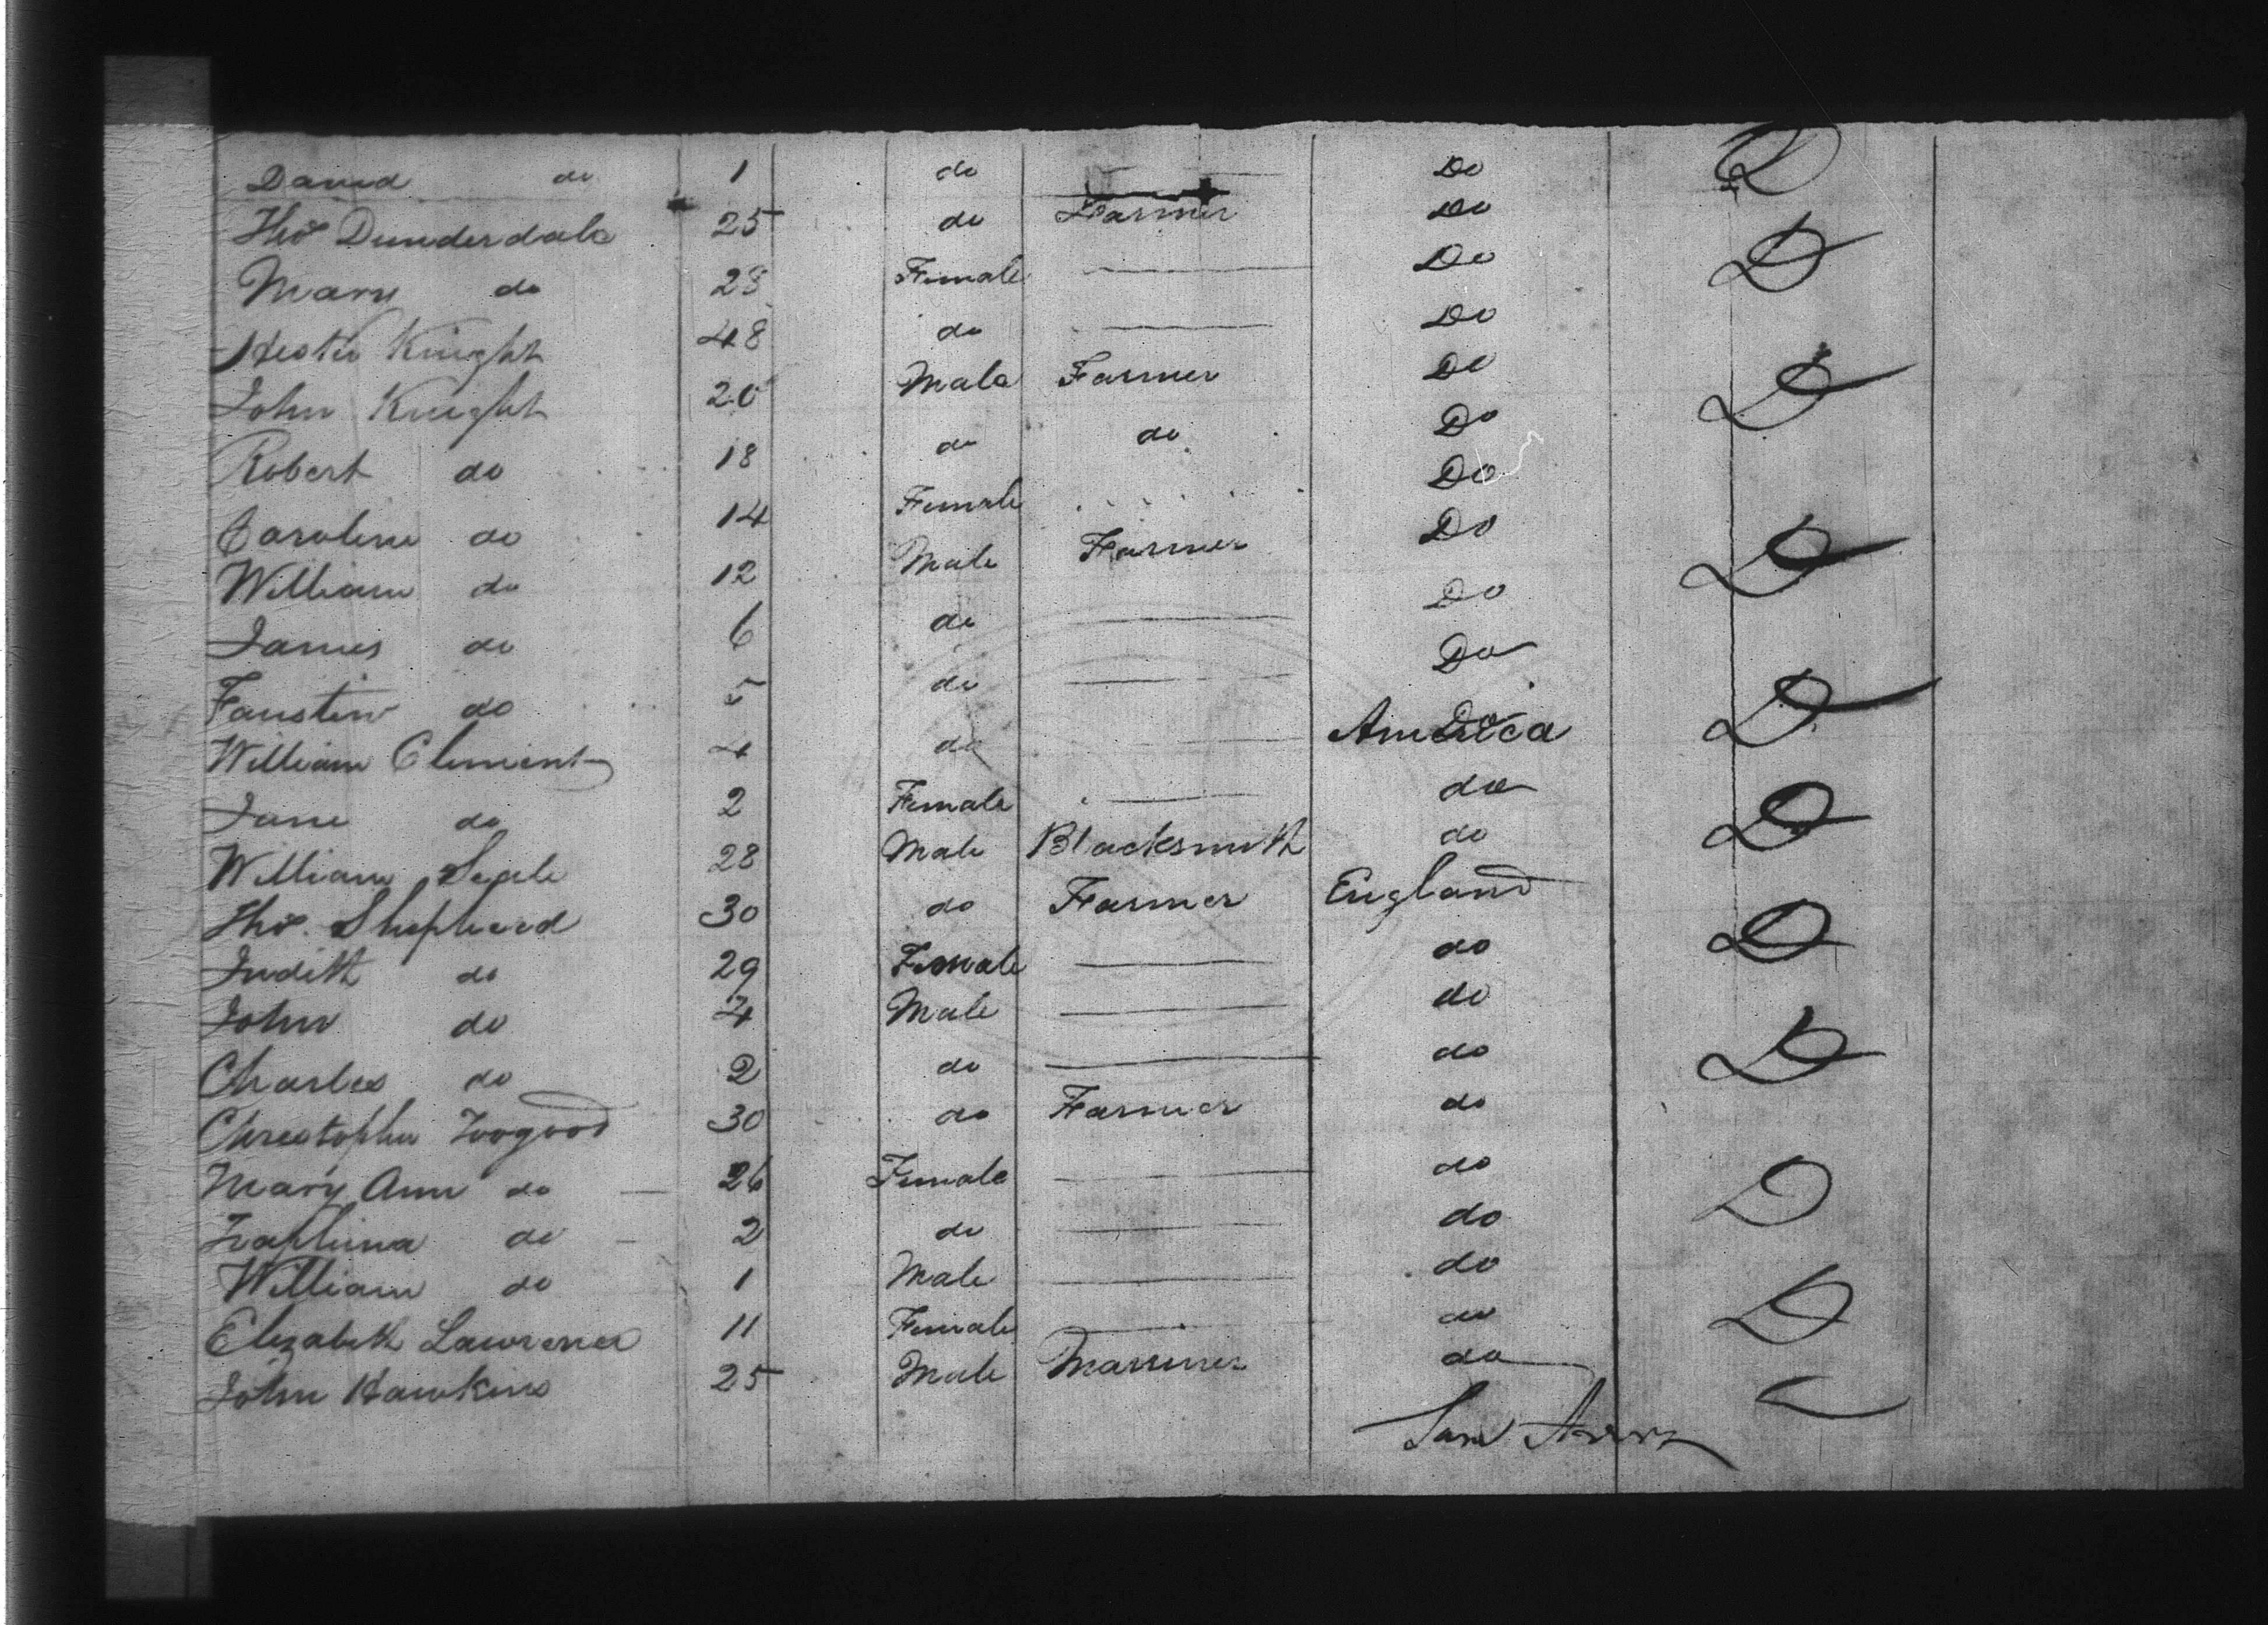 David do 1 do Do D
Tho^s Dunderdale 25 do Farmer Do
Mary do 28 Female Do D
Hester Knight 48 do Do
John Knight 20 Male Farmer Do D
Robert do 18 do do Do
Caroline do 14 Female Do
William do 12 Male Farmer Do D
James do 6 do Do
Faustin do 5 do Do D
William Clement 4 do America
Jane do 2 Female do D
William Seale 28 Male Blacksmith do
Tho^s. Shepherd 30 do Farmer England D
Judith do 29 Female do
John do 4 Male do D
Charles do 2 do do
Christopher Toogood 30 do Farmer do
Mary Ann do 26 Female do D
do 2 do do
William do 1 Male do D
Elizabeth Lawrence 11 Female do
John Hawkins 25 Male Mariner do